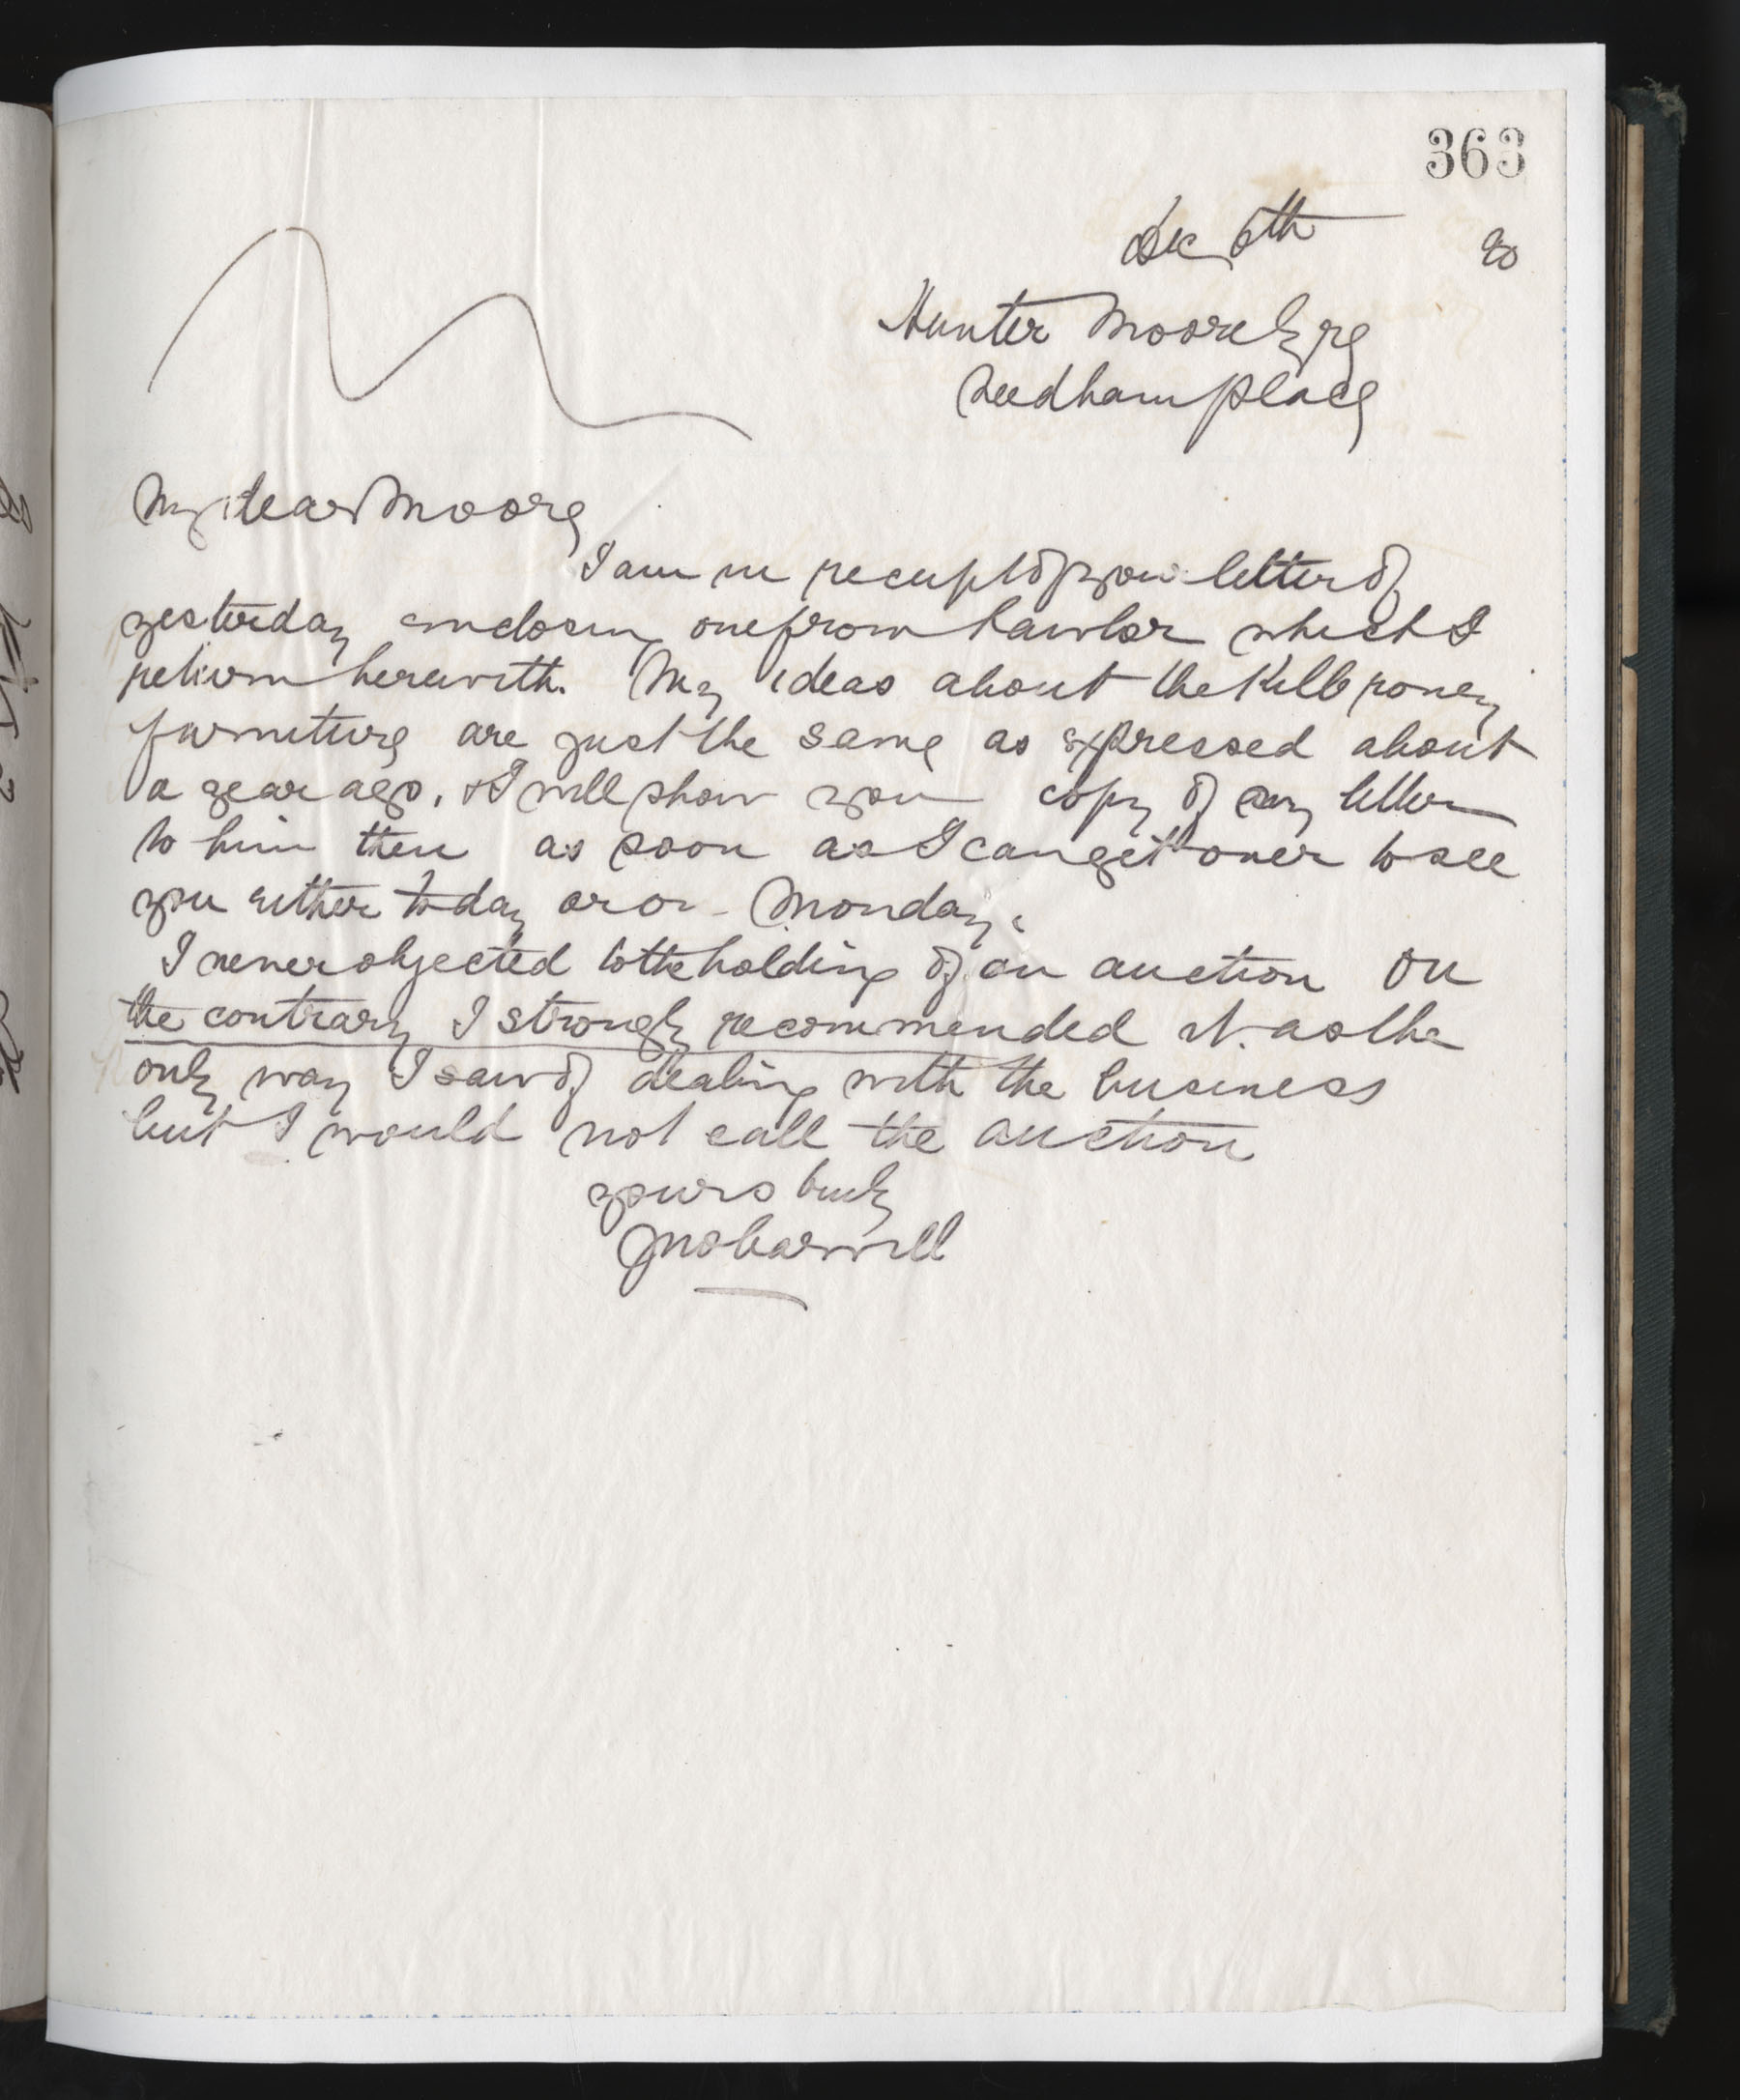 363
Dec 6th 90
Hunter Moore Esre
Needham place
My dear Moore
I am in receipt of your letter of
yesterday enclosing one from Lawlor which I
return herewith. My ideas about the Killroney
furniture are just the same as expressed about
a year ago. & I will show you copy of my letter
to him then as soon as I can get over to see
you either today or on Monday.
I never objected to the holding of an auction On
the contrary I strongly recommended it. as the
only way I saw of dealing with the business
but I would not call the auction
yours truly